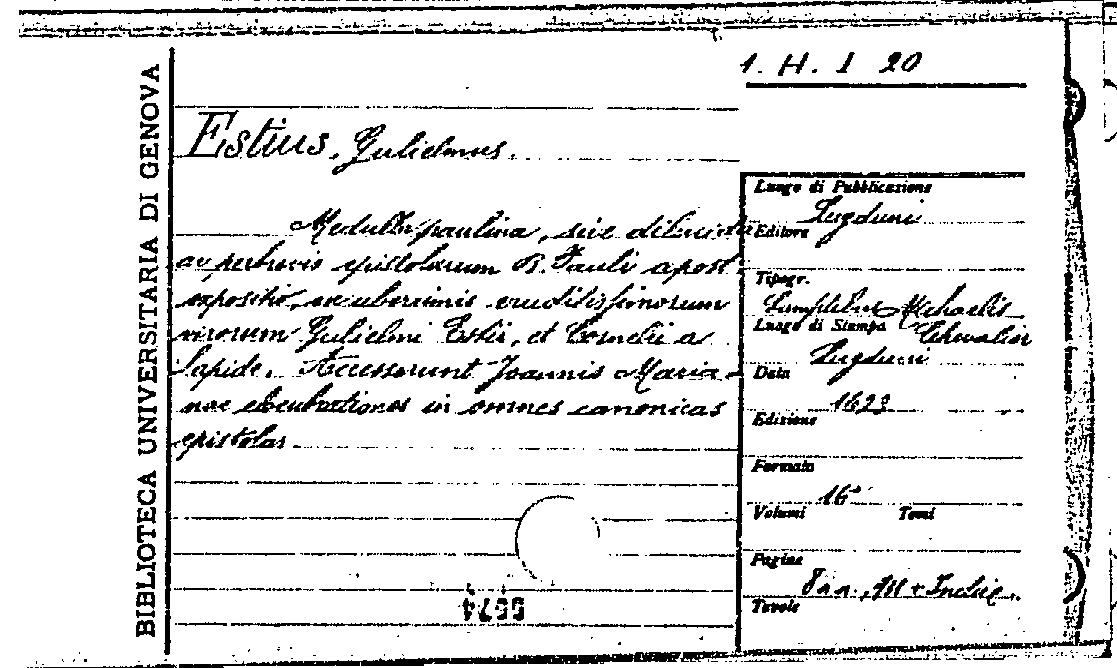 BIBLIOTECA UNIVERSITARIA DI GENOVA
1. H. I 20
Estius, Gulielmus.
Medulla paulina, sive dilucida
ac perbrevis epistolarum B. Pauli apost.
expositio, ex uberrimis eruditissimorum
virorum Gulielmi Estii, et Cornelii a
lapide. Accesserunt Joannis Maria-
nae elucubrationes in omnes canonicas
epistolas
Luogo di Pubblicazione
Lugduni
Editore
Tipogr.
Sumptibus Michaelis
Chevalier
Luogo di Stampa
Lugduni
Data
1623
Edizione
Formato
16°
Volumi Tomi
Pagine
8 nn., + Indic.
Tavole